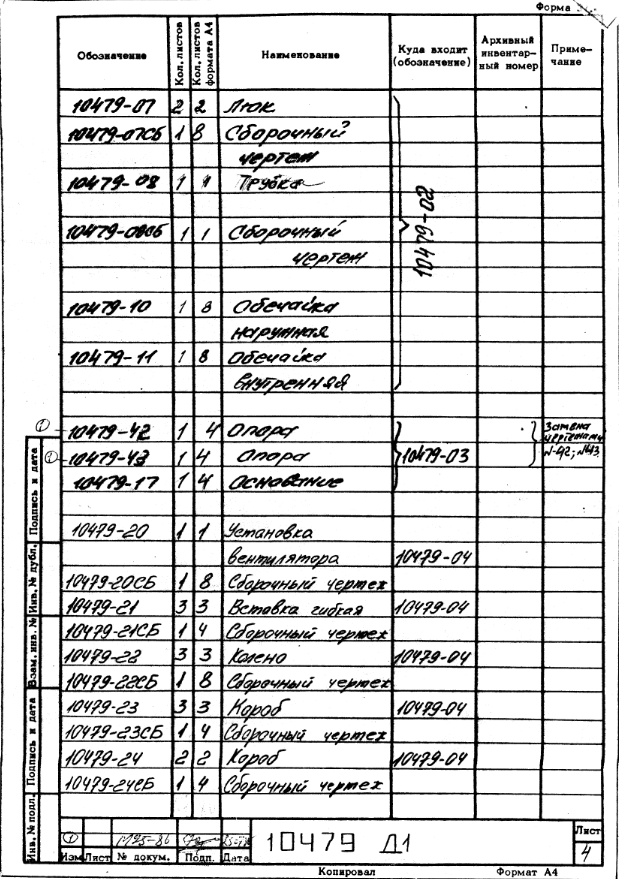 Форма
Обозначение Кол. листов Кол. листов формата А4 Наименование Куда входит (обозначение) Архивный инвентарный номер Примечание
10479-07 2 2 Люк
10479-07СБ 1 8 Сборочный
чертеж
10479-08 1 1 Трубка
10479-08СБ 1 1 Сборочный
чертеж
10479-02
10479-10 1 8 Обечайка
наружная
10479-11 1 8 Обечайка
внутренняя
① 10479-42 1 4 Опора Замена чертежами
① 10479-43 1 4 Опора 10479-03 №42; №43
10479-17 1 4 Основание
10479-20 1 1 Установка
вентилятора 10479-04
10479-20СБ 1 8 Сборочный чертеж
10479-21 3 3 Вставка гибкая 10479-04
10479-21СБ 1 4 Сборочный чертеж
10479-22 3 3 Колено 10479-04
10479-22СБ 1 8 Сборочный чертеж
10479-23 3 3 Короб 10479-04
10479-23СБ 1 4 Сборочный чертеж
10479-24 2 2 Короб 10479-04
10479-24СБ 1 4 Сборочный чертеж
Подпись и дата
Инв. № дубл.
Взам. инв. №
Подпись и дата
Инв. № подл.
① 1195-86
Изм Лист № докум. Подп. Дата
10479 Д1
Лист
4
Копировал Формат А4